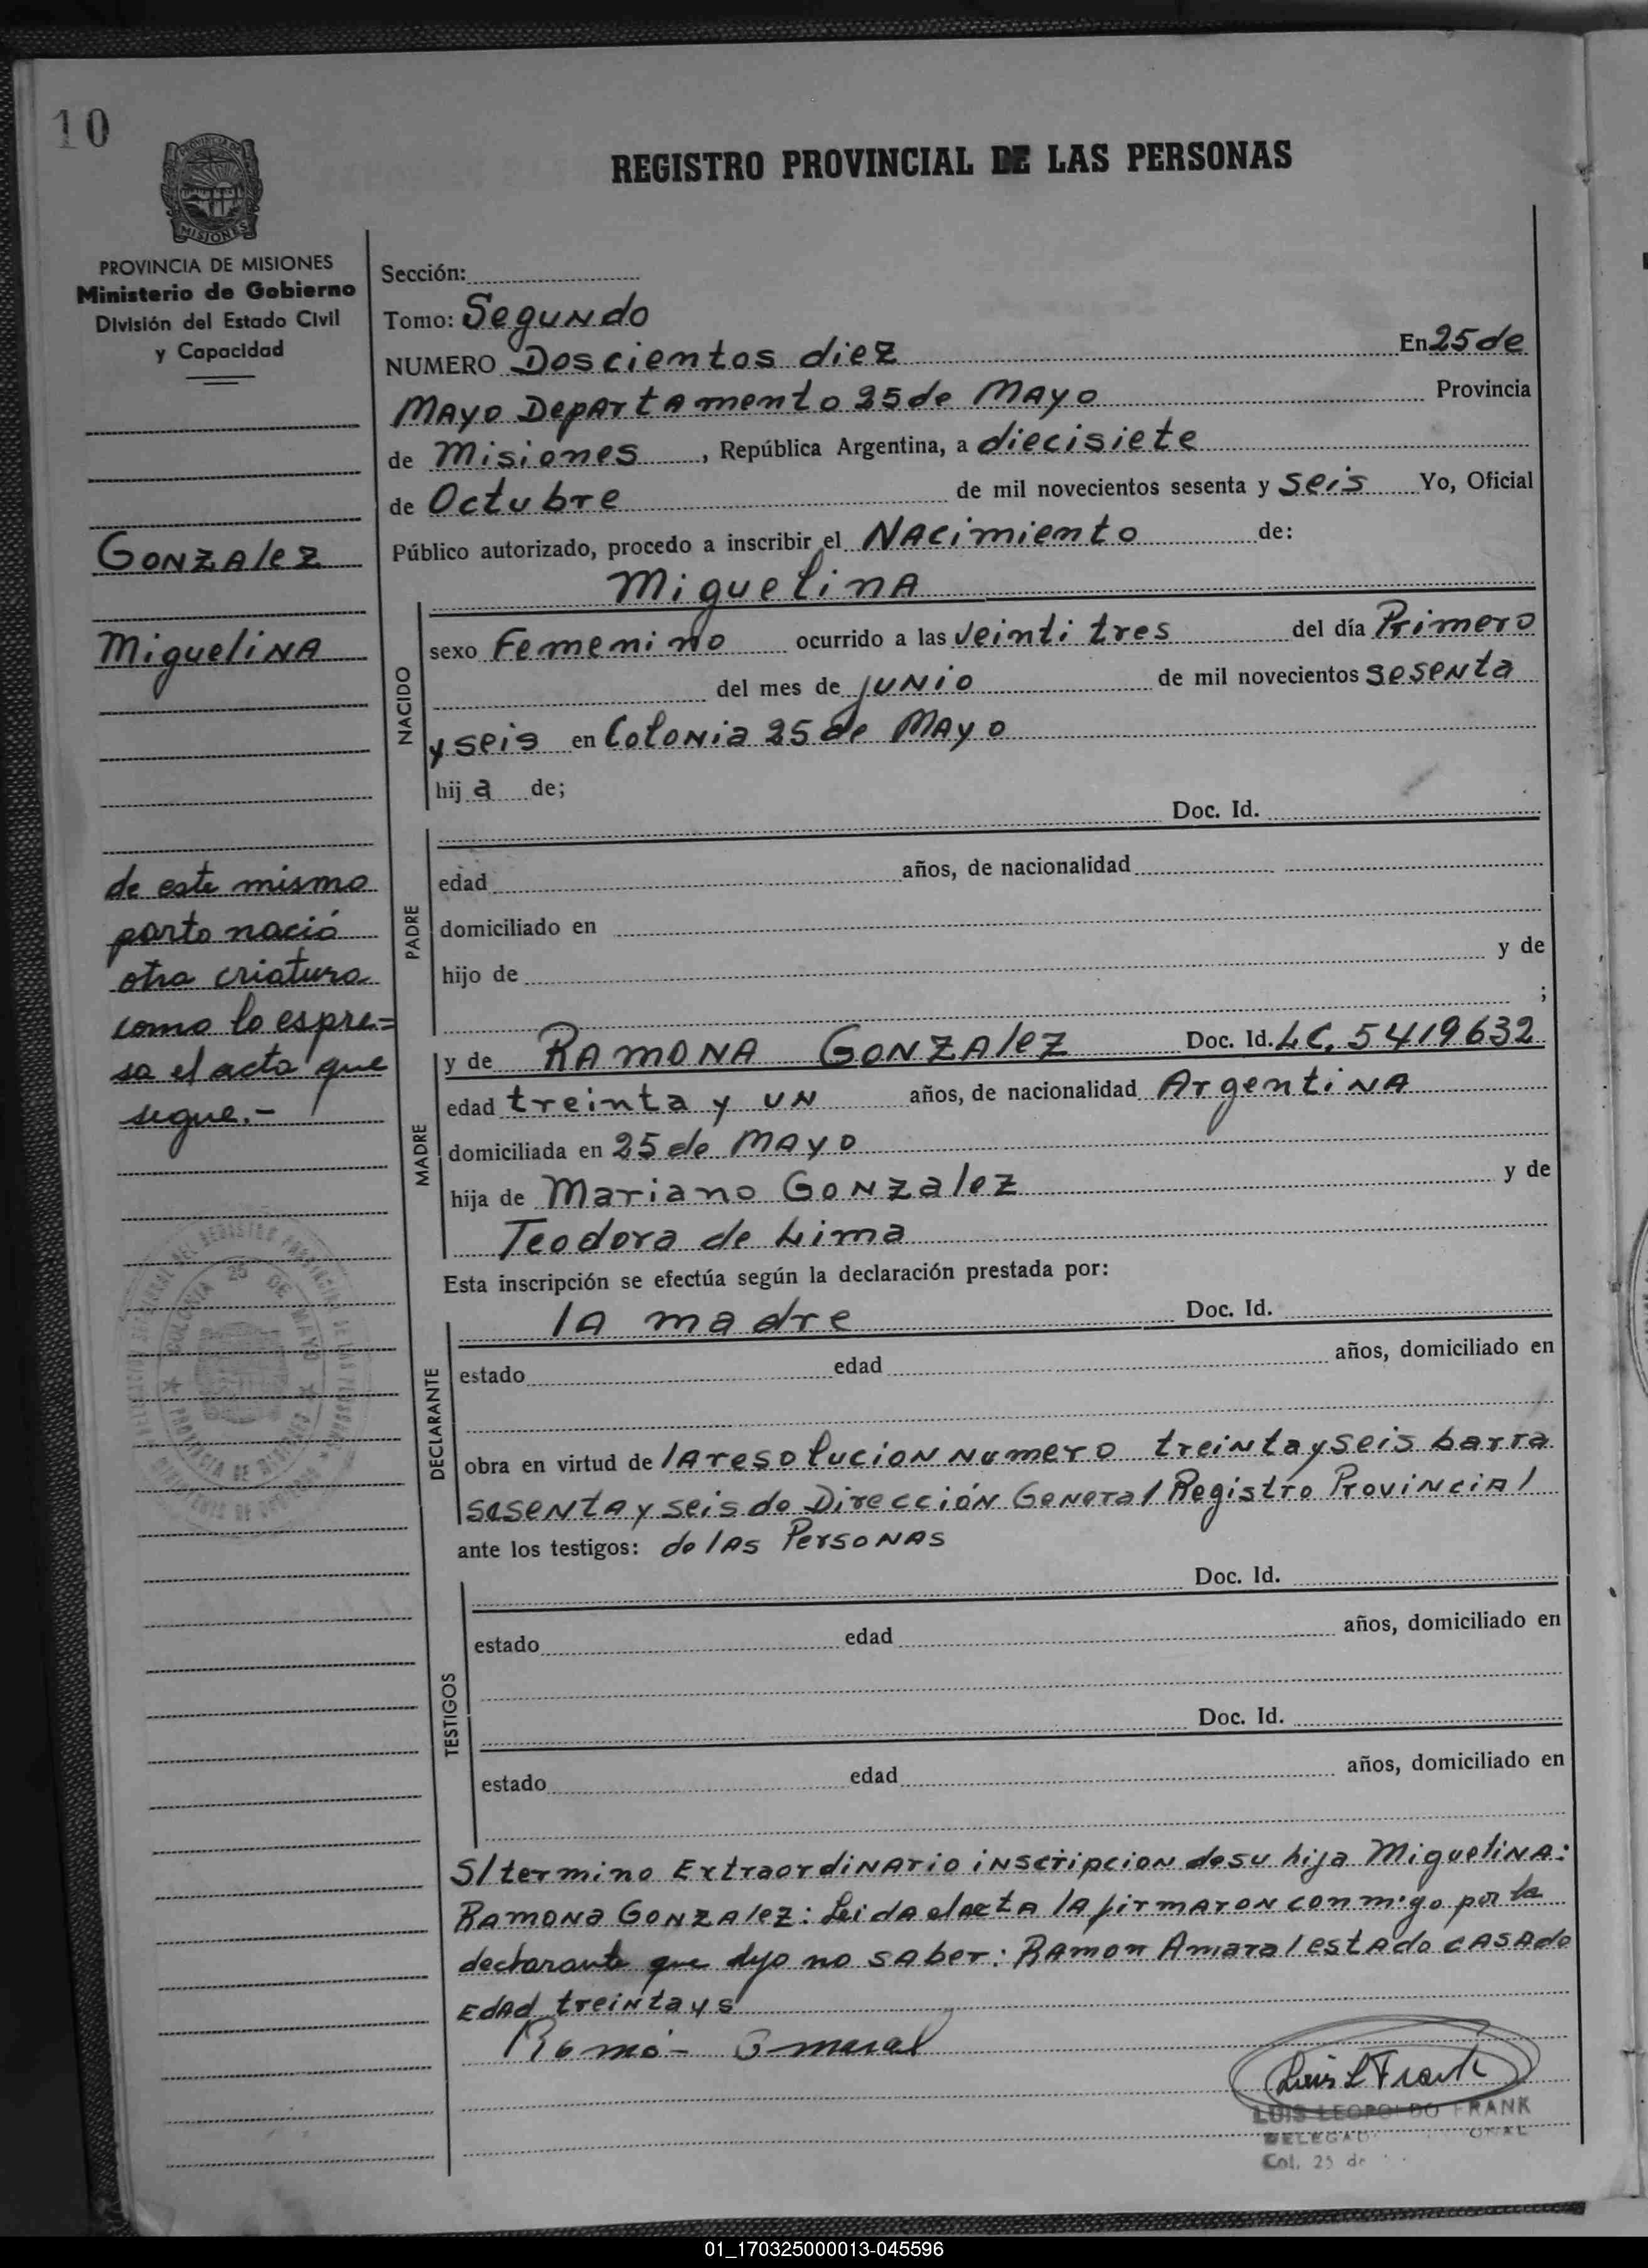 10
REGISTRO PROVINCIAL DE LAS PERSONAS
MISIONES
PROVINCIA DE MISIONES
Ministerio de Gobierno
División del Estado Civil
y Capacidad
GONZAlEZ
MiguelinA
de este mismo
parto nació
otra criatura
como lo espre=
sa el acta que
segue.-
Sección:
Tomo: Segundo
NUMERO Doscientos diez En 25 de
MAyo DepArtAmento 25 de MAyo Provincia
de Misiones, República Argentina, a diecisiete
de Octubre de mil novecientos sesenta y seis Yo, Oficial
Público autorizado, procedo a inscribir el NAcimiento de:
MiguelinA
NACIDO
sexo Femenino ocurrido a las veinti tres del día Primero
del mes de junio de mil novecientos sesenta
y seis en Colonia 25 de MAyo
hija de;
PADRE
Doc. Id.
edad años, de nacionalidad
domiciliado en
hijo de y de
;
MADRE
y de RAMONA GONZAlEZ Doc. Id. LC. 5419632
edad treinta y un años, de nacionalidad ArgentinA
domiciliada en 25 de MAyo
hija de Mariano Gonzalez y de
Teodora de Lima
Esta inscripción se efectúa según la declaración prestada por:
DECLARANTE
lA madre Doc. Id.
estado edad años, domiciliado en
obra en virtud de lA resolucion numero treinta y seis barra
sesenta y seis de Dirección General Registro Provincial
ante los testigos: de lAs Personas
TESTIGOS
Doc. Id.
estado edad años, domiciliado en
Doc. Id.
estado edad años, domiciliado en
S/termino ExtraordinArio inscripcion de su hija MiguelinA:
RAmona GONZAlez: Leida el ActA lA firmaron conmigo por la
declarante que dijo no sAber: RAmon Amaral estAdo cAsAdo
EdAd treinta y s
COLONIA 25 DE MAYO
PROVINCIA DE MISIONES
Luis L Frank
LUIS LEOPOLDO FRANK
Col. 25 de
01_170325000013-045596